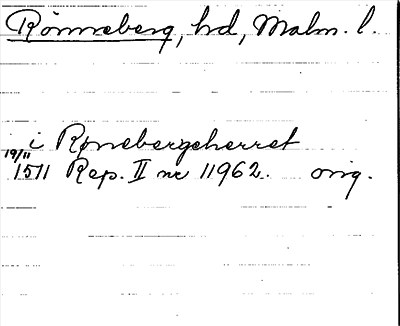 Rönneberg, hd, Malm. l.
i Rønebergeherret
19/11 1511 Rep. II nr 11962. orig.